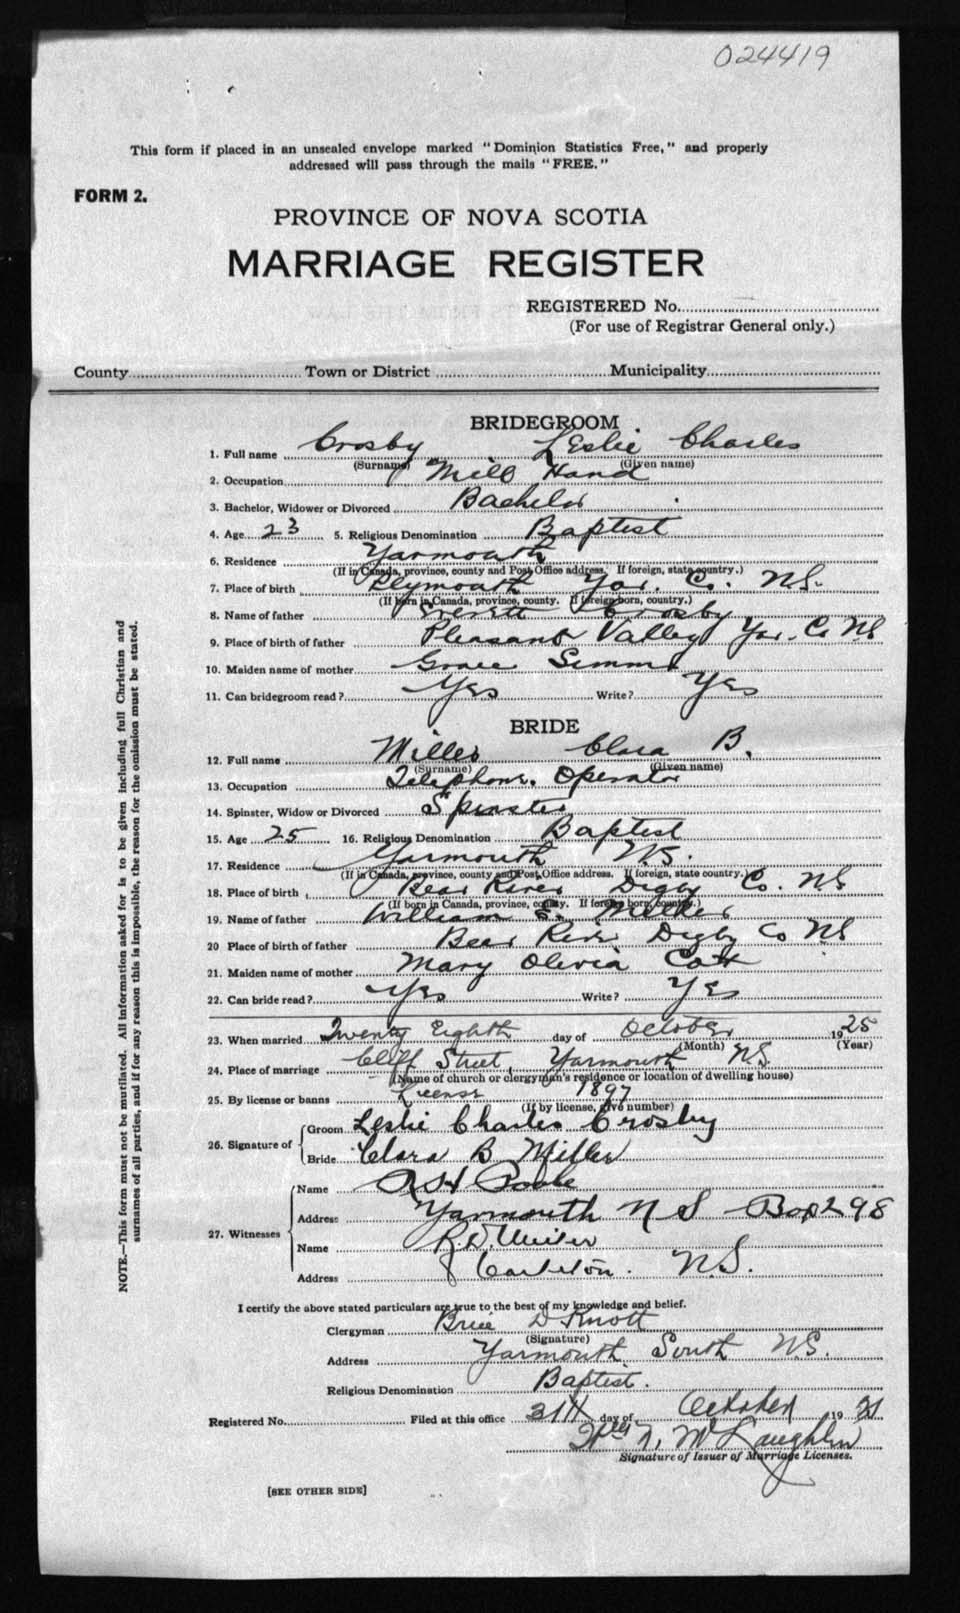 024419
This form if placed in an unsealed envelope marked "Dominion Statistics Free," and properly
addressed will pass through the mails "FREE."
FORM 2.
PROVINCE OF NOVA SCOTIA
MARRIAGE REGISTER
REGISTERED No.
(For use of Registrar General only.)
County Town or District Municipality
BRIDEGROOM
1. Full name Crosby Leslie Charles
(Surname) (Given name)
2. Occupation Mill Hand
3. Bachelor, Widower or Divorced Bachelor
4. Age 23 5. Religious Denomination Baptist
6. Residence Yarmouth
(If in Canada, province, county and Post Office address. If foreign, state country.)
7. Place of birth Plymouth Yar. Co. N.S.
(If born in Canada, province, county. If foreign born, country.)
8. Name of father Everett Crosby
9. Place of birth of father Pleasant Valley Yar. Co NS
10. Maiden name of mother Grace Simms
11. Can bridegroom read? Yes Write? Yes
BRIDE
12. Full name Miller Clara B.
(Surname) (Given name)
13. Occupation Telephone Operator
14. Spinster, Widow or Divorced Spinster
15. Age 25 16. Religious Denomination Baptist
17. Residence Yarmouth N.S.
(If in Canada, province, county and Post Office address. If foreign, state country.)
18. Place of birth Bear River Digby Co. NS
(If born in Canada, province, county. If foreign born, country.)
19. Name of father William E. Miller
20 Place of birth of father Bear River Digby Co NS
21. Maiden name of mother Mary Olivia Cott
22. Can bride read? Yes Write? Yes
23. When married Twenty Eighth day of October 1925
(Month) (Year)
24. Place of marriage Cliff Street, Yarmouth N.S.
(Name of church or clergyman's residence or location of dwelling house)
25. By license or banns License 1897
(If by license, give number)
26. Signature of Groom Leslie Charles Crosby
Bride Clara B Miller
27. Witnesses Name Poole
Address Yarmouth N S Box 298
Name R. D. Miller
Address Carleton. N.S.
I certify the above stated particulars are true to the best of my knowledge and belief.
Clergyman Brice D Knott
(Signature)
Address Yarmouth South N.S.
Religious Denomination Baptist.
Registered No. Filed at this office 31st day of October 19
McLaughlin
Signature of Issuer of Marriage Licenses.
[SEE OTHER SIDE]
NOTE.—This form must not be mutilated. All information asked for is to be given including full Christian and
surnames of all parties, and if for any reason this is impossible, the reason for the omission must be stated.